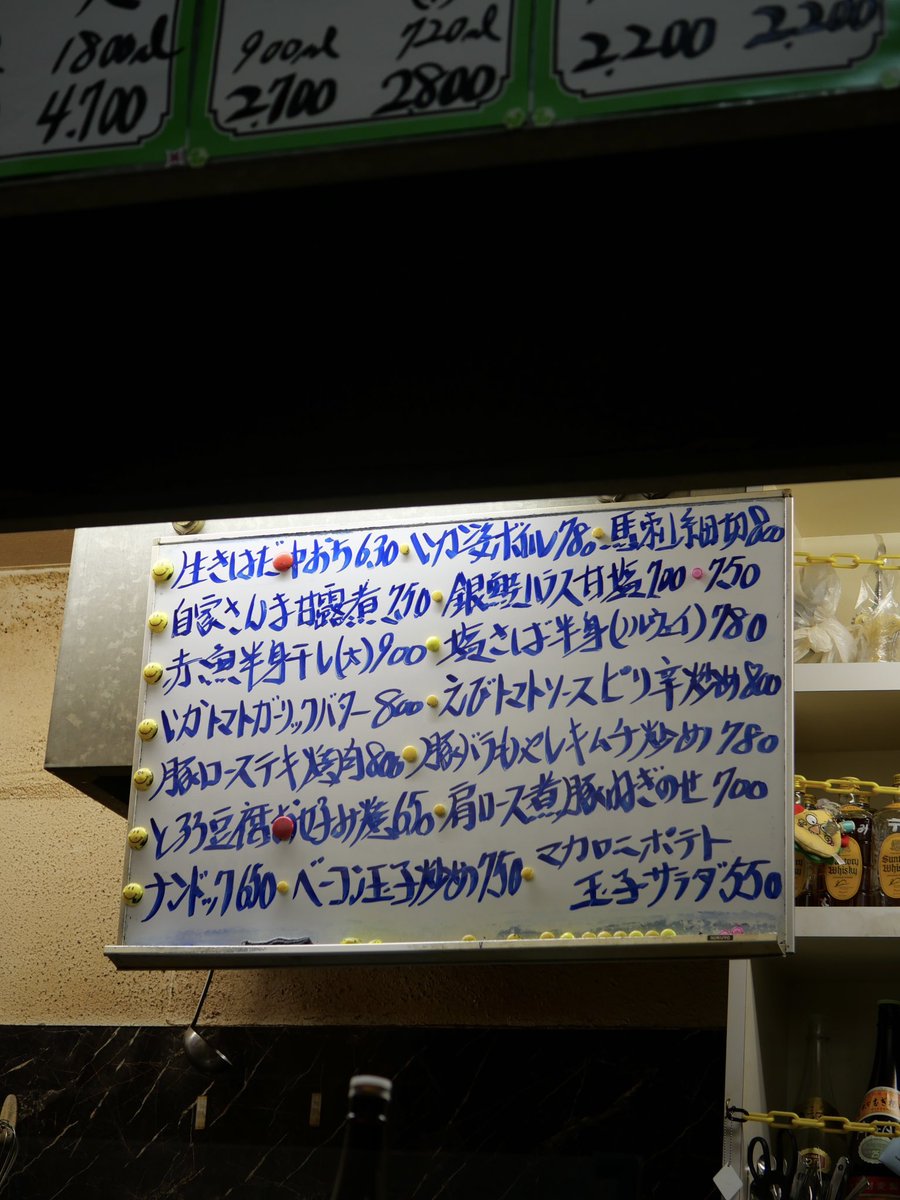 1800ml
900ml 720ml
4.700
2.700 2.800
2.200 2.200
生きはだ中おち630 いか姿ボイル780 馬刺し細切800
自家さんま甘露煮750 銀鮭ハラス甘塩700 750
赤魚半身干し(大)900 塩さば半身(ノルウェイ)780
いかトマトガーリックバター800 えびトマトソースピリ辛炒め800
豚ロースステキ焼肉800 豚バラもやしキムチ炒め780
とろろ豆腐お好み焼650 肩ロース煮豚ねぎのせ700
ナンドック650 ベーコン玉子炒め750 マカロニポテト
玉子サラダ550
KOKUYO
Suntory
Whisky